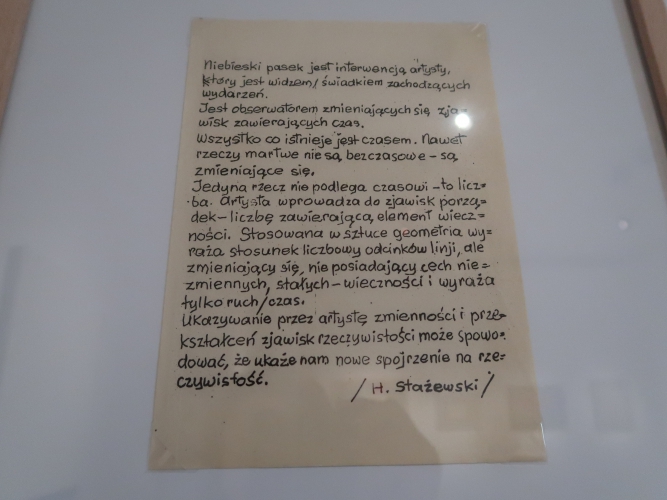 Niebieski pasek jest interwencją artysty,
który jest widzem/świadkiem zachodzących
wydarzeń.
Jest obserwatorem zmieniających się zja=
wisk zawierających czas.
Wszystko co istnieje jest czasem. Nawet
rzeczy martwe nie są bezczasowe – są
zmieniające się.
Jedyna rzecz nie podlega czasowi – to licz=
ba. Artysta wprowadza do zjawisk porzą=
dek – liczbę zawierającą element wiecz=
ności. Stosowana w sztuce geometria wy=
raża stosunek liczbowy odcinków linji, ale
zmieniający się, nie posiadający cech nie=
zmiennych, stałych – wieczności i wyraża
tylko ruch/czas.
Ukazywanie przez artystę zmienności i prze=
kształceń zjawisk rzeczywistości może spowo=
dować, że ukaże nam nowe spojrzenie na rze=
czywistość.
/H. Stażewski/